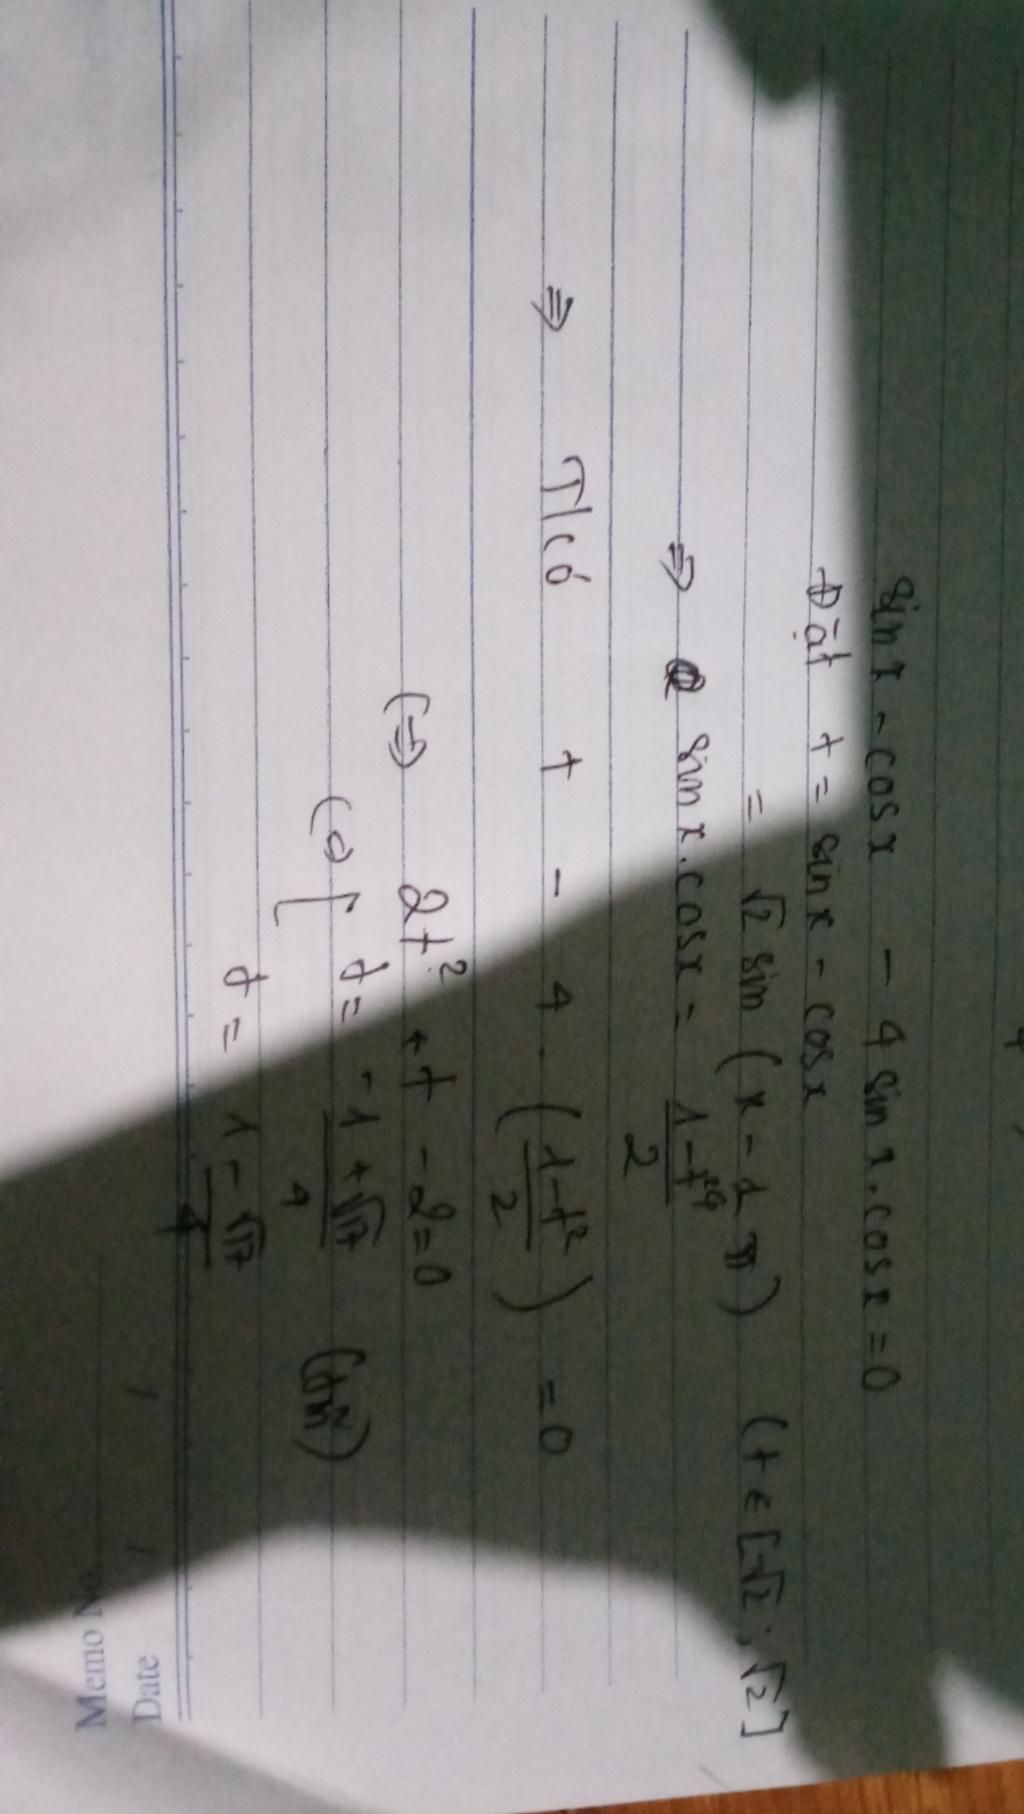 sin x - cos x - 4 sin x . cos x = 0
Đặt t = sin x - cos x
= √2 sin (x - 1/4 π) (t ∈ [-√2 ; √2]
⇒ sin x . cos x = (1 - t²)/2
⇒ T/có t - 4 . ((1 - t²)/2) = 0
(⇒ 2t² + t - 2 = 0
(⇒ [ t = (-1 + √17)/4 (tm)
t = (1 - √17)/4
Date / /
Memo No.